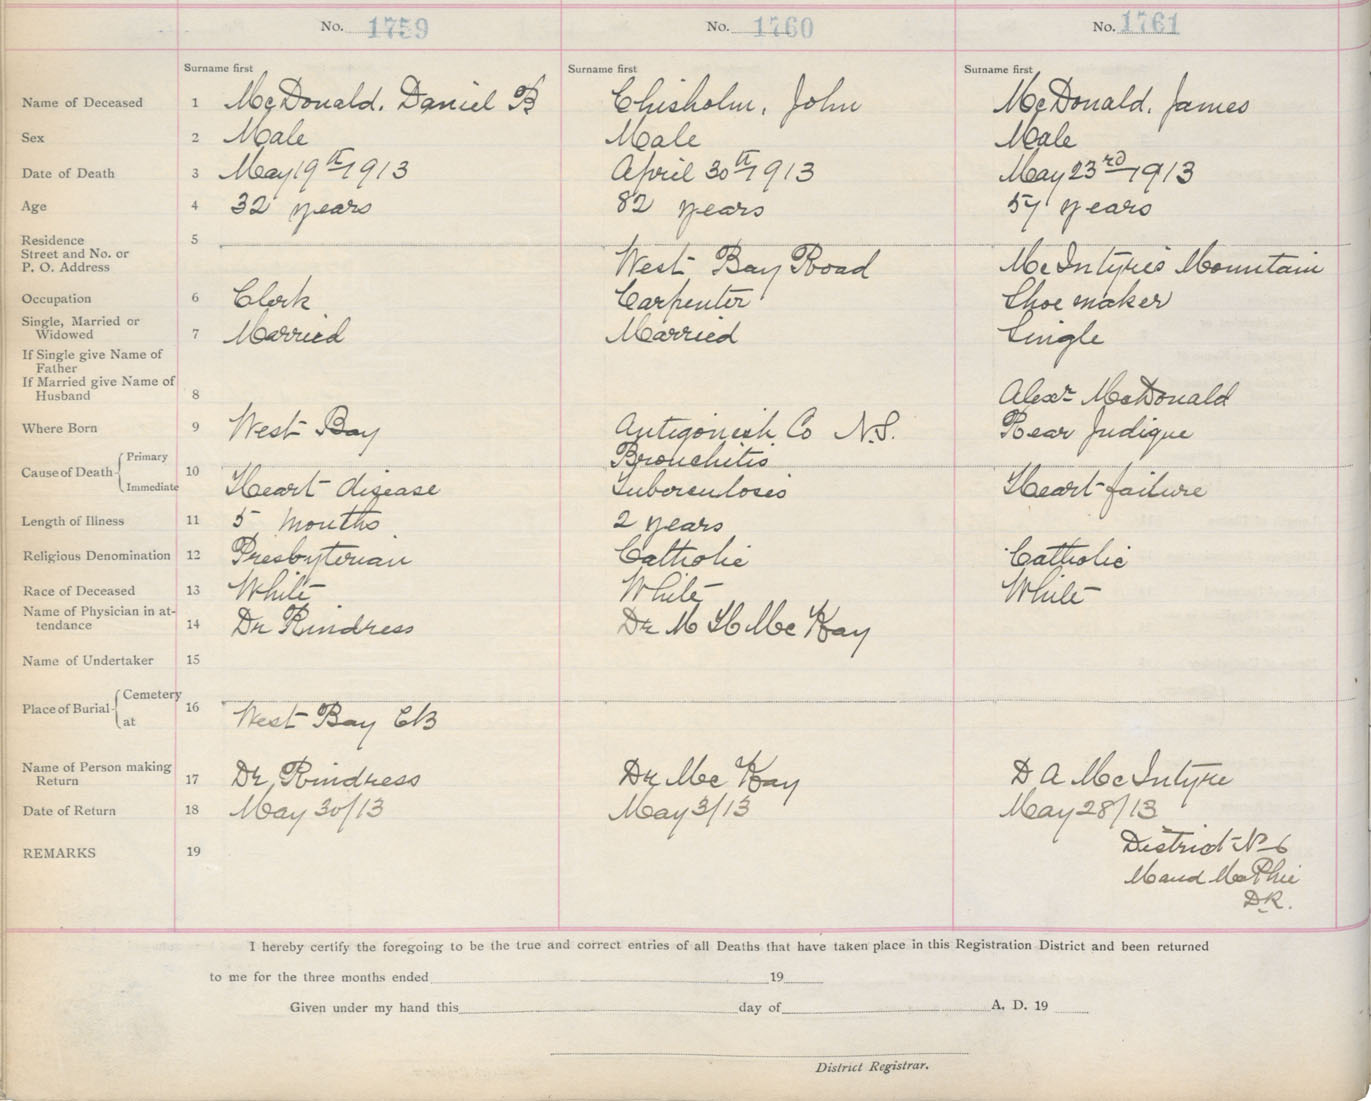 No. 1759 No. 1760 No. 1761
Surname first Surname first Surname first
Name of Deceased 1 McDonald, Daniel B Chisholm, John McDonald, James
Sex 2 Male Male Male
Date of Death 3 May 19th 1913 April 30th 1913 May 23rd 1913
Age 4 32 years 82 years 57 years
Residence 5
Street and No. or
P. O. Address West Bay Road McIntyres Mountain
Occupation 6 Clerk Carpenter Shoe maker
Single, Married or
Widowed 7 Married Married Single
If Single give Name of
Father
If Married give Name of
Husband 8 Alexr McDonald
Where Born 9 West Bay Antigonish Co N.S. Rear Judique
Primary Bronchitis
Cause of Death 10
Immediate Heart disease Tuberculosis Heart failure
Length of Illness 11 5 months 2 years
Religious Denomination 12 Presbyterian Catholic Catholic
Race of Deceased 13 White White White
Name of Physician in at-
tendance 14 Dr Rindress Dr M H McKay
Name of Undertaker 15
Cemetery
Place of Burial 16
at West Bay CB
Name of Person making
Return 17 Dr Rindress Dr McKay D A McIntyre
Date of Return 18 May 30/13 May 3/13 May 28/13
REMARKS 19 District No 6
Maud McPhie
D.R.
I hereby certify the foregoing to be the true and correct entries of all Deaths that have taken place in this Registration District and been returned
to me for the three months ended 19
Given under my hand this day of A. D. 19
District Registrar.